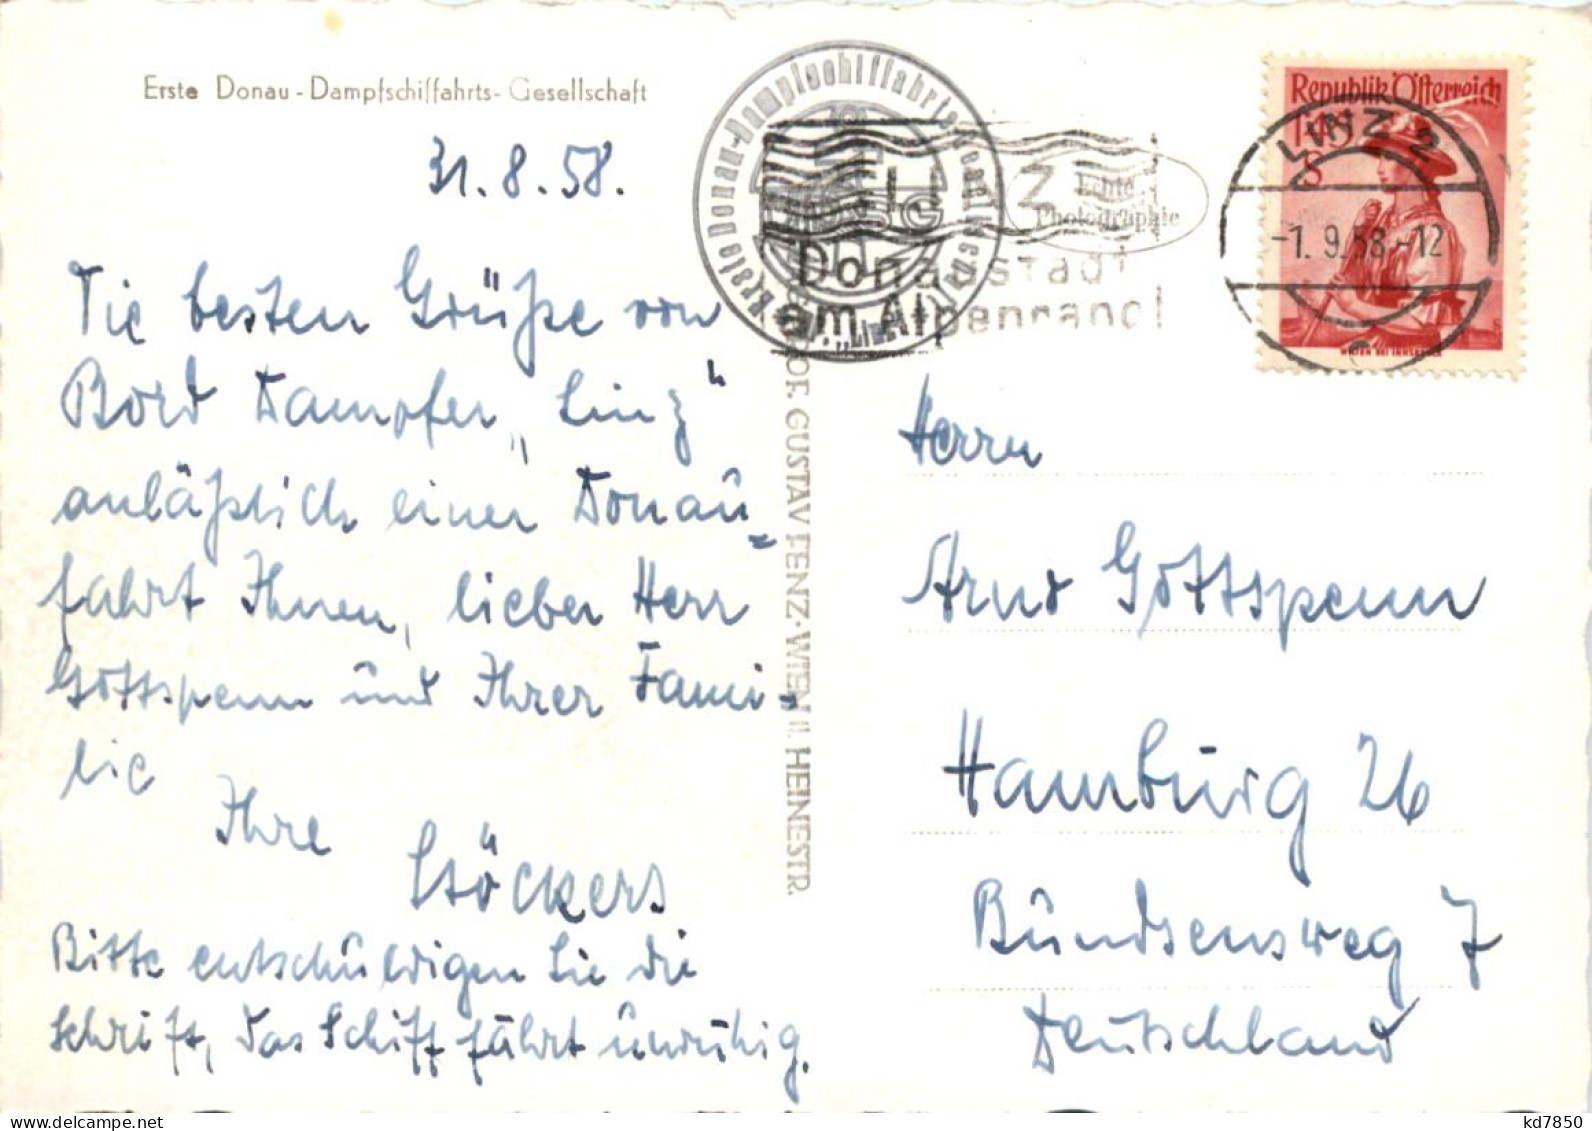 Erste Donau-Dampfschiffahrts-Gesellschaft
31. 8. 58.
Die besten Grüße von
Bord Dampfer „Linz"
anläßlich einer Donau=
fahrt Ihnen, lieber Herr
Gottspenn und Ihrer Fami-
lie
Ihre
Stöckers
Bitte entschuldigen Sie die
Schrift, das Schiff fährt unruhig.
GUSTAV FENZ·WIEN II. HEINESTR.
Erste Donau-Dampfschiffahrts-Gesellschaft
„Linz"
LINZ
Donaustadt
am Alpenrand
Echte
Photographie
Republik Österreich
1·45
S
LINZ 2
-1. 9. 58 -12
Herrn
Arno Gottspenn
Hamburg 26
Bundsensweg 7
Deutschland
kd7850